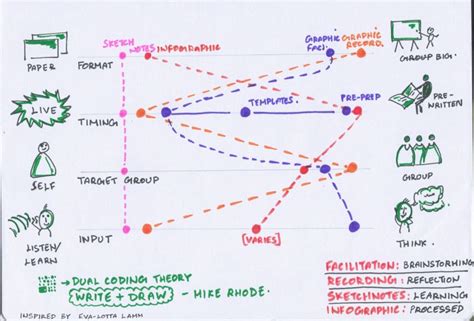 SKETCH NOTES
INFOGRAPHIC
GRAPHIC FACI.
GRAPHIC RECORD.
PAPER
FORMAT
GROUP BIG.
LIVE
TIMING
TEMPLATES.
PRE-PREP
PRE-WRITTEN
SELF
TARGET GROUP
GROUP
LISTEN/
LEARN
INPUT
[VARIES]
THINK.
→ DUAL CODING THEORY
WRITE + DRAW - MIKE RHODE.
INSPIRED BY EVA-LOTTA LAMM
FACILITATION: BRAINSTORMING
RECORDING: REFLECTION
SKETCHNOTES: LEARNING
INFOGRAPHIC: PROCESSED